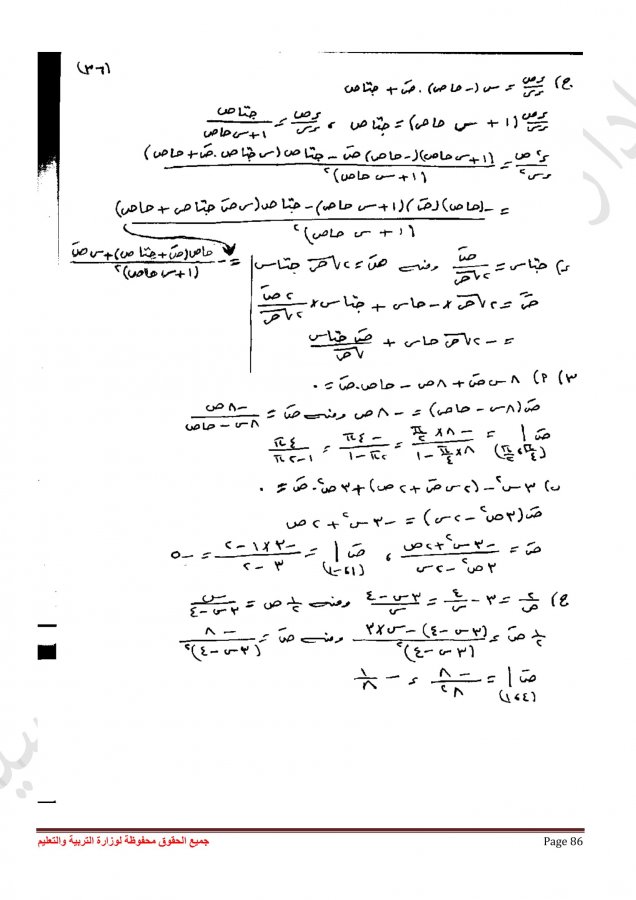 (٣٦)
ج) ءص/ءس = س (-حاص) . صَ + جتاص
ءص/ءس (١ + س حاص) = جتاص ، ءص/ءس = جتاص/(١+س حاص)
ء²ص/ءس² = ((١+س حاص)(-حاص) صَ - جتاص (س جتاص . صَ + حاص))/(١+س حاص)²
= (-(حاص)(صَ)(١+س حاص) - جتاص (س صَ جتاص + حاص))/(١+س حاص)²
= -(حاص(صَ + جتاص) + س صَ)/(١+س حاص)²
ء) جتاس = صَ/(٢√ص) ومنه صَ = ٢√ص جتاس
صً = ٢√ص × -حاس + جتاس × ٢صَ/(٢√ص)
= -٢√ص حاس + صَ جتاس/√ص
٣) ٩) ٨س صَ + ٨ص - حاص . صَ = ٠
صَ(٨س - حاص) = -٨ص ومنه صَ = -٨ص/(٨س - حاص)
صَ|(π/٤ ، π/٢) = (-٨ × π/٢)/(٨ × π/٤ - ١) = -٤π/(٢π - ١) = ٤π/(١ - ٢π)
ب) ٣س² - (٢س صَ + ٢ص) + ٣ص² . صَ = ٠
صَ(٣ص² - ٢س) = -٣س² + ٢ص
صَ = (-٣س² + ٢ص)/(٣ص² - ٢س) ، صَ|(١ ، -١) = (-٣×١ - ٢)/(٣ - ٢) = -٥
ج) ٢/ص = ٣ - ٤/س = (٣س - ٤)/س ومنه ١/٢ ص = س/(٣س - ٤)
١/٢ صَ = ((٣س - ٤) - س×٣)/(٣س - ٤)² ومنه صَ = -٨/(٣س - ٤)²
صَ|(٤ ، ١) = -٨/٨² = -١/٨
جميع الحقوق محفوظة لوزارة التربية والتعليم
Page 86